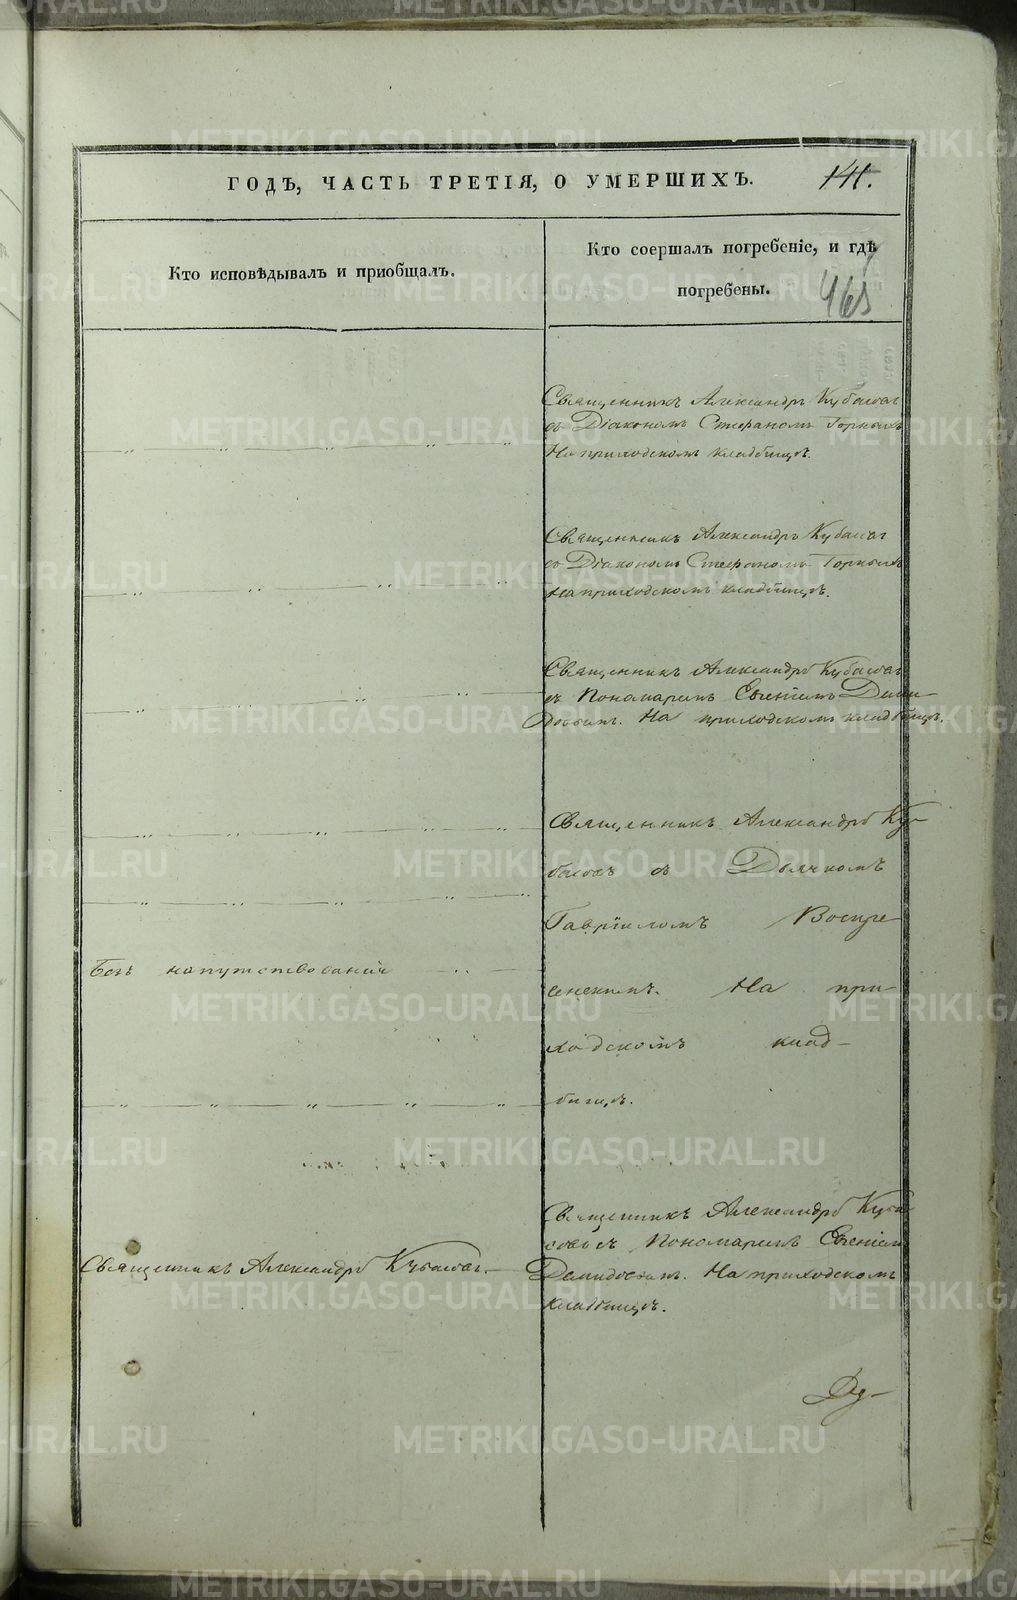 ГОДЪ, ЧАСТЬ ТРЕТІЯ, О УМЕРШИХЪ.
141.
Кто исповѣдывалъ и приобщалъ.
Кто соершалъ погребеніе, и гдѣ
погребены.
465
Священникъ Александръ Кубасовъ
съ Діакономъ Стефаномъ Горныхъ
На приходскомъ кладбищѣ.
Священникъ Александръ Кубасовъ
съ Діакономъ Стефаномъ Горныхъ
На приходскомъ кладбищѣ.
Священникъ Александръ Кубасовъ
съ Пономаремъ Евгеніемъ Деми-
довымъ. На приходскомъ кладбищѣ.
Священникъ Александръ Ку-
басовъ съ Дьячкомъ
Гавріиломъ Воскре
сенскимъ. На при-
Безъ напутствованія
ходскомъ клад-
бищѣ.
Священникъ Александръ Куба
совъ съ Пономаремъ Евгеніем
Священникъ Александръ Кубасовъ.
Демидовымъ. На приходскомъ
кладбищѣ.
METRIKI.GASO-URAL.RU